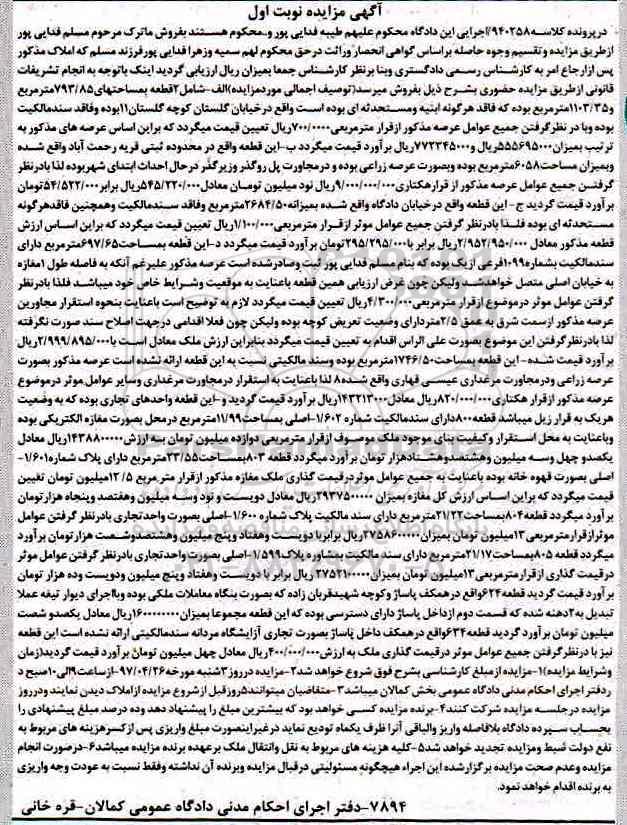 آگهی مزایده نوبت اول
درپرونده کلاسه ۹۴۰۲۵۸/اجرایی این دادگاه محکوم علیهم طیبه فدایی پور و..محکوم هستند بفروش ماترک مرحوم مسلم فدایی پور
ازطریق مزایده وتقسیم وجوه حاصله براساس گواهی انحصار وراثت درحق محکوم لهم سمیه وزهرا فدایی پورفرزند مسلم که املاک مذکور
پس ازارجاع امر به کارشناس رسمی دادگستری وبنا برنظر کارشناس جمعا بمیزان ریال ارزیابی گردید اینک باتوجه به انجام تشریفات
قانونی ازطریق مزایده حضوری بشرح ذیل بفروش میرسد(توصیف اجمالی موردمزایده)الف-شامل۲قطعه بمساحتهای۷۹۳/۸۵مترمربع
و۱۱۰۳/۳۵مترمربع بوده که فاقد هرگونه ابنیه ومستحدثه ای بوده است واقع درخیابان گلستان کوچه گلستان۱۱بوده وفاقد سندمالکیت
بوده وبا در نظرگرفتن جمیع عوامل عرصه مذکور ازقرار مترمربعی۷۰۰/۰۰۰ریال تعیین قیمت میگردد که براین اساس عرصه های مذکور به
ترتیب بمیزان۵۵۵۶۹۵۰۰۰ریال و۷۷۲۳۴۵۰۰۰ریال برآورد قیمت میگردد ب-این قطعه واقع در محدوده ثبتی قریه رحمت آباد واقع شده
وبمیزان مساحت۶۰۵۸مترمربع بوده وبصورت عرصه زراعی بوده و درمجاورت پل روگذر وزیرگذر درحال احداث ابتدای شهربوده لذا بادرنظر
گرفتن جمیع عوامل عرصه مذکور از قرارهکتاری۹/۰۰۰/۰۰۰/۰۰۰ریال نود میلیون تومان معادل۵۴۵/۲۲۰/۰۰۰ریال برابر۵۴/۵۲۲/۰۰۰تومان
برآورد قیمت گردید ج- این قطعه واقع درخیابان دادگاه واقع شده بمیزانه۲۶۸۴/۵۰مترمربع وفاقد سندمالکیت وهمچنین فاقدهرگونه
مستحدثه ای بوده فلذا بادرنظر گرفتن جمیع عوامل موثر ازقرار مترمربعی۱/۱۰۰/۰۰۰ریال تعیین قیمت میگردد که براین اساس ارزش
قطعه مذکور معادل ۲/۹۵۲/۹۵۰/۰۰۰ریال برابر با۲۹۵/۲۹۵/۰۰۰تومان برآورد قیمت میگردد د-این قطعه بمساحت۶۹۷/۶۵مترمربع دارای
سندمالکیت بشماره۱۰۹۹فرعی ازیک بوده که بنام مسلم فدایی پور ثبت وصادرشده است عرصه مذکور علیرغم آنکه به فاصله طول ۱مغازه
به خیابان اصلی متصل خواهدشد ولیکن چون غرض ارزیابی همین قطعه باعنایت به موقعیت وشرایط خاص خود میباشد فلذا بادرنظر
گرفتن عوامل موثر درموضوع ازقرار مترمربعی۴/۳۰۰/۰۰۰ریال تعیین قیمت میگردد لازم به توضیح است باعنایت بنحوه استقرار مجاورین
عرصه مذکور ازسمت شرق به عمق ۲/۵متردارای وضعیت تعریض کوچه بوده ولیکن چون فعلا اقدامی درجهت اصلاح سند صورت نگرفته
لذا بادرنظرگرفتن این موضوع بصورت علی الراس اقدام به تعیین قیمت میگردد بنابراین ارزش ملک معادل است با۲/۹۹۹/۸۹۵/۰۰۰ریال
برآورد قیمت شده-این قطعه بمساحت۱۷۴۶/۵۰مترمربع بوده وسند مالکیتی نسبت به این قطعه ارائه نشده است عرصه مذکور بصورت
عرصه زراعی ودرمجاورت مرغداری عیسی قهاری واقع شده۸ لذا باعنایت به استقرار درمجاورت مرغداری وسایر عوامل موثر درموضوع
عرصه مذکور ازقرار هکتاری۸۲۰/۰۰۰/۰۰۰ریال معادل۱۴۳۲۱۳۰۰۰ریال برآورد قیمت گردید و-این قطعه واحدهای تجاری بوده که به وضعیت
هریک به قرار زیل میباشد قطعه۸۰۰دارای سندمالکیت شماره ۱/۶۰۲-اصلی بمساحت۱۱/۹۹مترمربع درمحل بصورت مغازه الکتریکی بوده
وباعنایت به محل استقرار وکیفیت بنای موجود ملک موصوف ازقرار مترمربعی دوازده میلیون تومان به ارزش۱۴۳۸۸۰۰۰۰۰ریال معادل
یکصدو چهل وسه میلیون وهشتصدوهشتادهزار تومان برآورد میگردد قطعه ۸۰۳بمساحت۲۳/۵۵مترمربع دارای پلاک شماره۱/۶۰۱-
اصلی بصورت قهوه خانه بوده باعنایت به جمیع عوامل موثردرقیمت گذاری ملک مغازه مذکور ازقرار متر مربع ۱۲/۵میلیون تومان تعیین
قیمت میگردد که براین اساس ارزش کل مغازه بمیزان ۲۹۳۷۵۰۰۰۰۰ریال معادل دویست و نود وسه میلیون وهفتصد وپنجاه هزارتومان
برآورد گردید قطعه۸۰۴بمساحت۲۱/۲۲مترمربع دارای سند مالکیت پلاک شماره ۱/۶۰۰-اصلی بصورت واحدتجاری بادرنظر گرفتن عوامل
موثرازقرارمترمربعی۱۳میلیون تومان بمیزان۲۷۵۸۶۰۰۰۰۰ریال برابربا دویست وهفتاد وپنج میلیون وهشتصدوشصت هزارتومان برآورد
میگردد قطعه ۸۰۵بمساحت۲۱/۱۷مترمربع دارای سند مالکیت بمشاوره پلاک۱/۵۹۹-اصلی بصورت واحدتجاری بادرنظر گرفتن عوامل موثر
درقیمت گذاری ازقرارمترمربعی ۱۳میلیون تومان بمیزان۲۷۵۲۱۰۰۰۰۰ریال برابر با دویست وهفتاد وپنج میلیون ودویست وده هزار تومان
برآورد قیمت گردید قطعه۶۲۴واقع درهمکف پاساژ وکوچه شهیدقربان زاده که بصورت بنگاه معاملات ملکی بوده وبااجرای دیوار تیغه عملا
تبدیل به۲دهنه شده که قسمت دوم ازداخل پاساژ دارای دسترسی بوده که این قطعه مجموعا بمیزان۱۶۰۰۰۰۰۰۰۰ریال معادل یکصدو شصت
میلیون تومان برآورد گردید قطعه۶۳۴واقع درهمکف داخل پاساژ بصورت تجاری آرایشگاه مردانه سندمالکیتی ارائه نشده است این قطعه
نیز با درنظرگرفتن جمیع عوامل موثر درقیمت گذاری ملک به ارزش۴۰۰/۰۰۰/۰۰۰ریال معادل چهل میلیون تومان برآورد قیمت گردید(زمان
وشرایط مزایده)۱-مزایده ازمبلغ کارشناسی بشرح فوق شروع خواهد شد۲-مزایده درروز۳شنبه مورخه۹۷/۰۴/۲۶-ازساعت۹الی۱۰صبح د
ردفتر اجرای احکام مدنی دادگاه عمومی بخش کمالان میباشد۳-متقاضیان میتوانند۵روزقبل ازشروع مزایده ازاملاک دیدن نمایند ودرروز
مزایده درجلسه مزایده شرکت کنند۴-برنده مزایده کسی خواهد بود که بیشترین مبلغ را پیشنهاد دهد وده درصد مبلغ پیشنهادی را
بحساب سپرده دادگاه بلافاصله واریز والباقی آنرا ظرف یکماه تودیع نماید درغیراینصورت مبلغ واریزی پس ازکسرهزینه های مربوط به
نفع دولت ضبط ومزایده تجدید خواهد شد۵-کلیه هزینه های مربوط به نقل وانتقال ملک برعهده برنده مزایده میباشد۶-درصورت انجام
مزایده وعدم صحت مزایده برگزارشده این اجراء هیچگونه مسئولیتی درقبال مزایده وبرنده آن نداشته وفقط نسبت به عودت وجه واریزی
به برنده اقدام خواهد نمود.
۷۸۹۴-دفتر اجرای احکام مدنی دادگاه عمومی کمالان-قره خانی